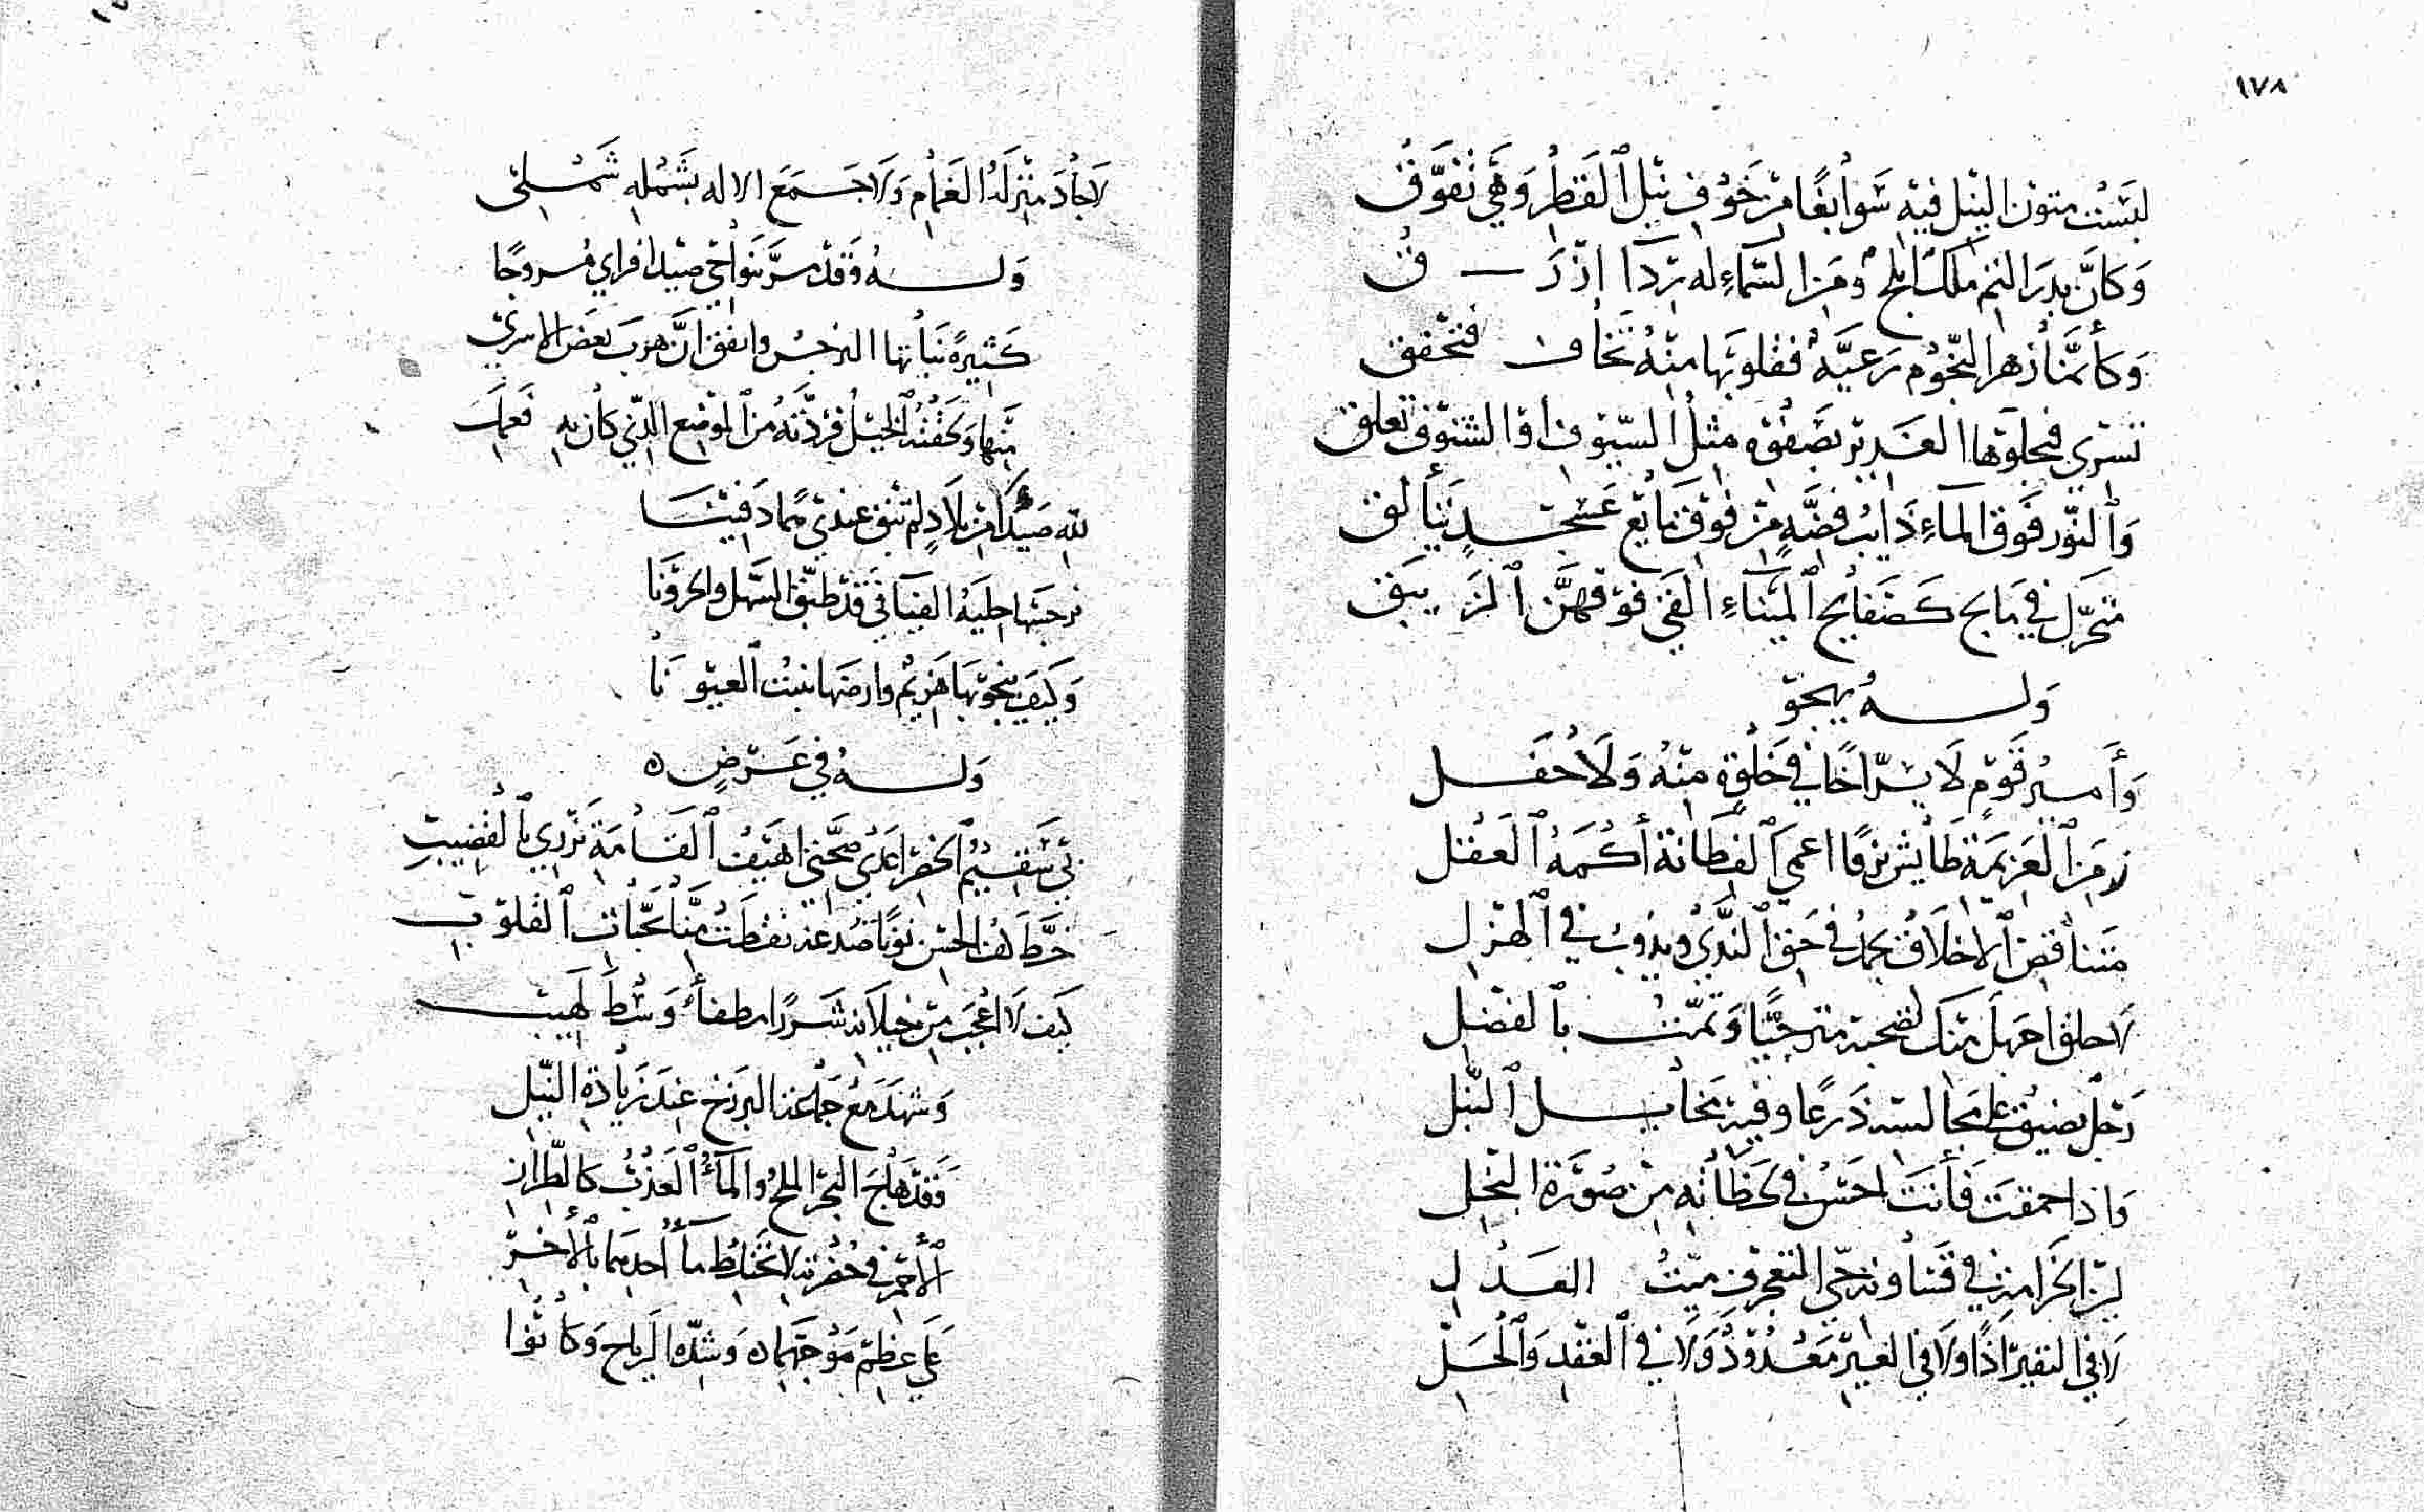 ١٧٨
لبست متون النيل فيه سوابغًا من خوف نبل القطر وهي تفوق
وكأن بدر التم ملك ابلج ومن السماء له رداً ازرق
وكأنما زهر النجوم رعية فقلوبها منه تخاف فتخفق
تسري فيجلوها الغدير بصفوه مثل السيوف او الشنوف تعلق
والنور فوق الماء ذايب فضة من فوق مايع عسجد يتألق
في مايج كصفايح الميناء القي فوقهن الزيبق
وله يهجو
وأمير قوم لا يسر اخا في خلوة منه ولا حفل
زمن العزيمة طايش نزقا اعمى الفطانة أكمه العقل
متناقض الاخلاق يجمد في حق الندى ويذوب في الهزل
لاحلق اجهل منك لضحية مترجيًا وتمت بالفضل
رجل يضيق على مجالسه ذرعا وفيه مخايل النبل
واذا حمقت فأنت احسن في لحظاته من صورة البخل
في قنا وترجى التعرف ميت العدل
لا في النفير اذًا ولا في العير معدود ولا في العقد والحل
لا جاد منزله الغمام ولا جمع الاله بشمله شملي
وله وقد مر بنواحي صيدا فراي مروجًا
كثيرة نباتها النرجس واتفق ان هرب بعض الاسرى
منها ولحقته الخيل فردته من الموضع الذي كان به فعمل
لله صيدا من بلاد لم تبق عندي هما دفينا
نرجسها حلية الفيافي قد طبق السهل والحزونا
وكيف ينجو بها هزيم وارضها تنبت العيونا
وله في عرض ه
بي سقيم الخصر اهيف القامة تزري بالقضيب
خط لهذا الحسن نونًا صدغه نقطت منا بحبات القلوب
كيف لا اعجب من خيلانه شررًا مطفأ وسط لهيب
وشهد مع جماعة البرزخ عند زيادة النيل
فقد هاج البحر الملح والماء العذب كالطراز
الاحمر في خضرته لا يختلط مآ احدهما بالأخر
على عظم موجهما وشدة الرياح وكانوا